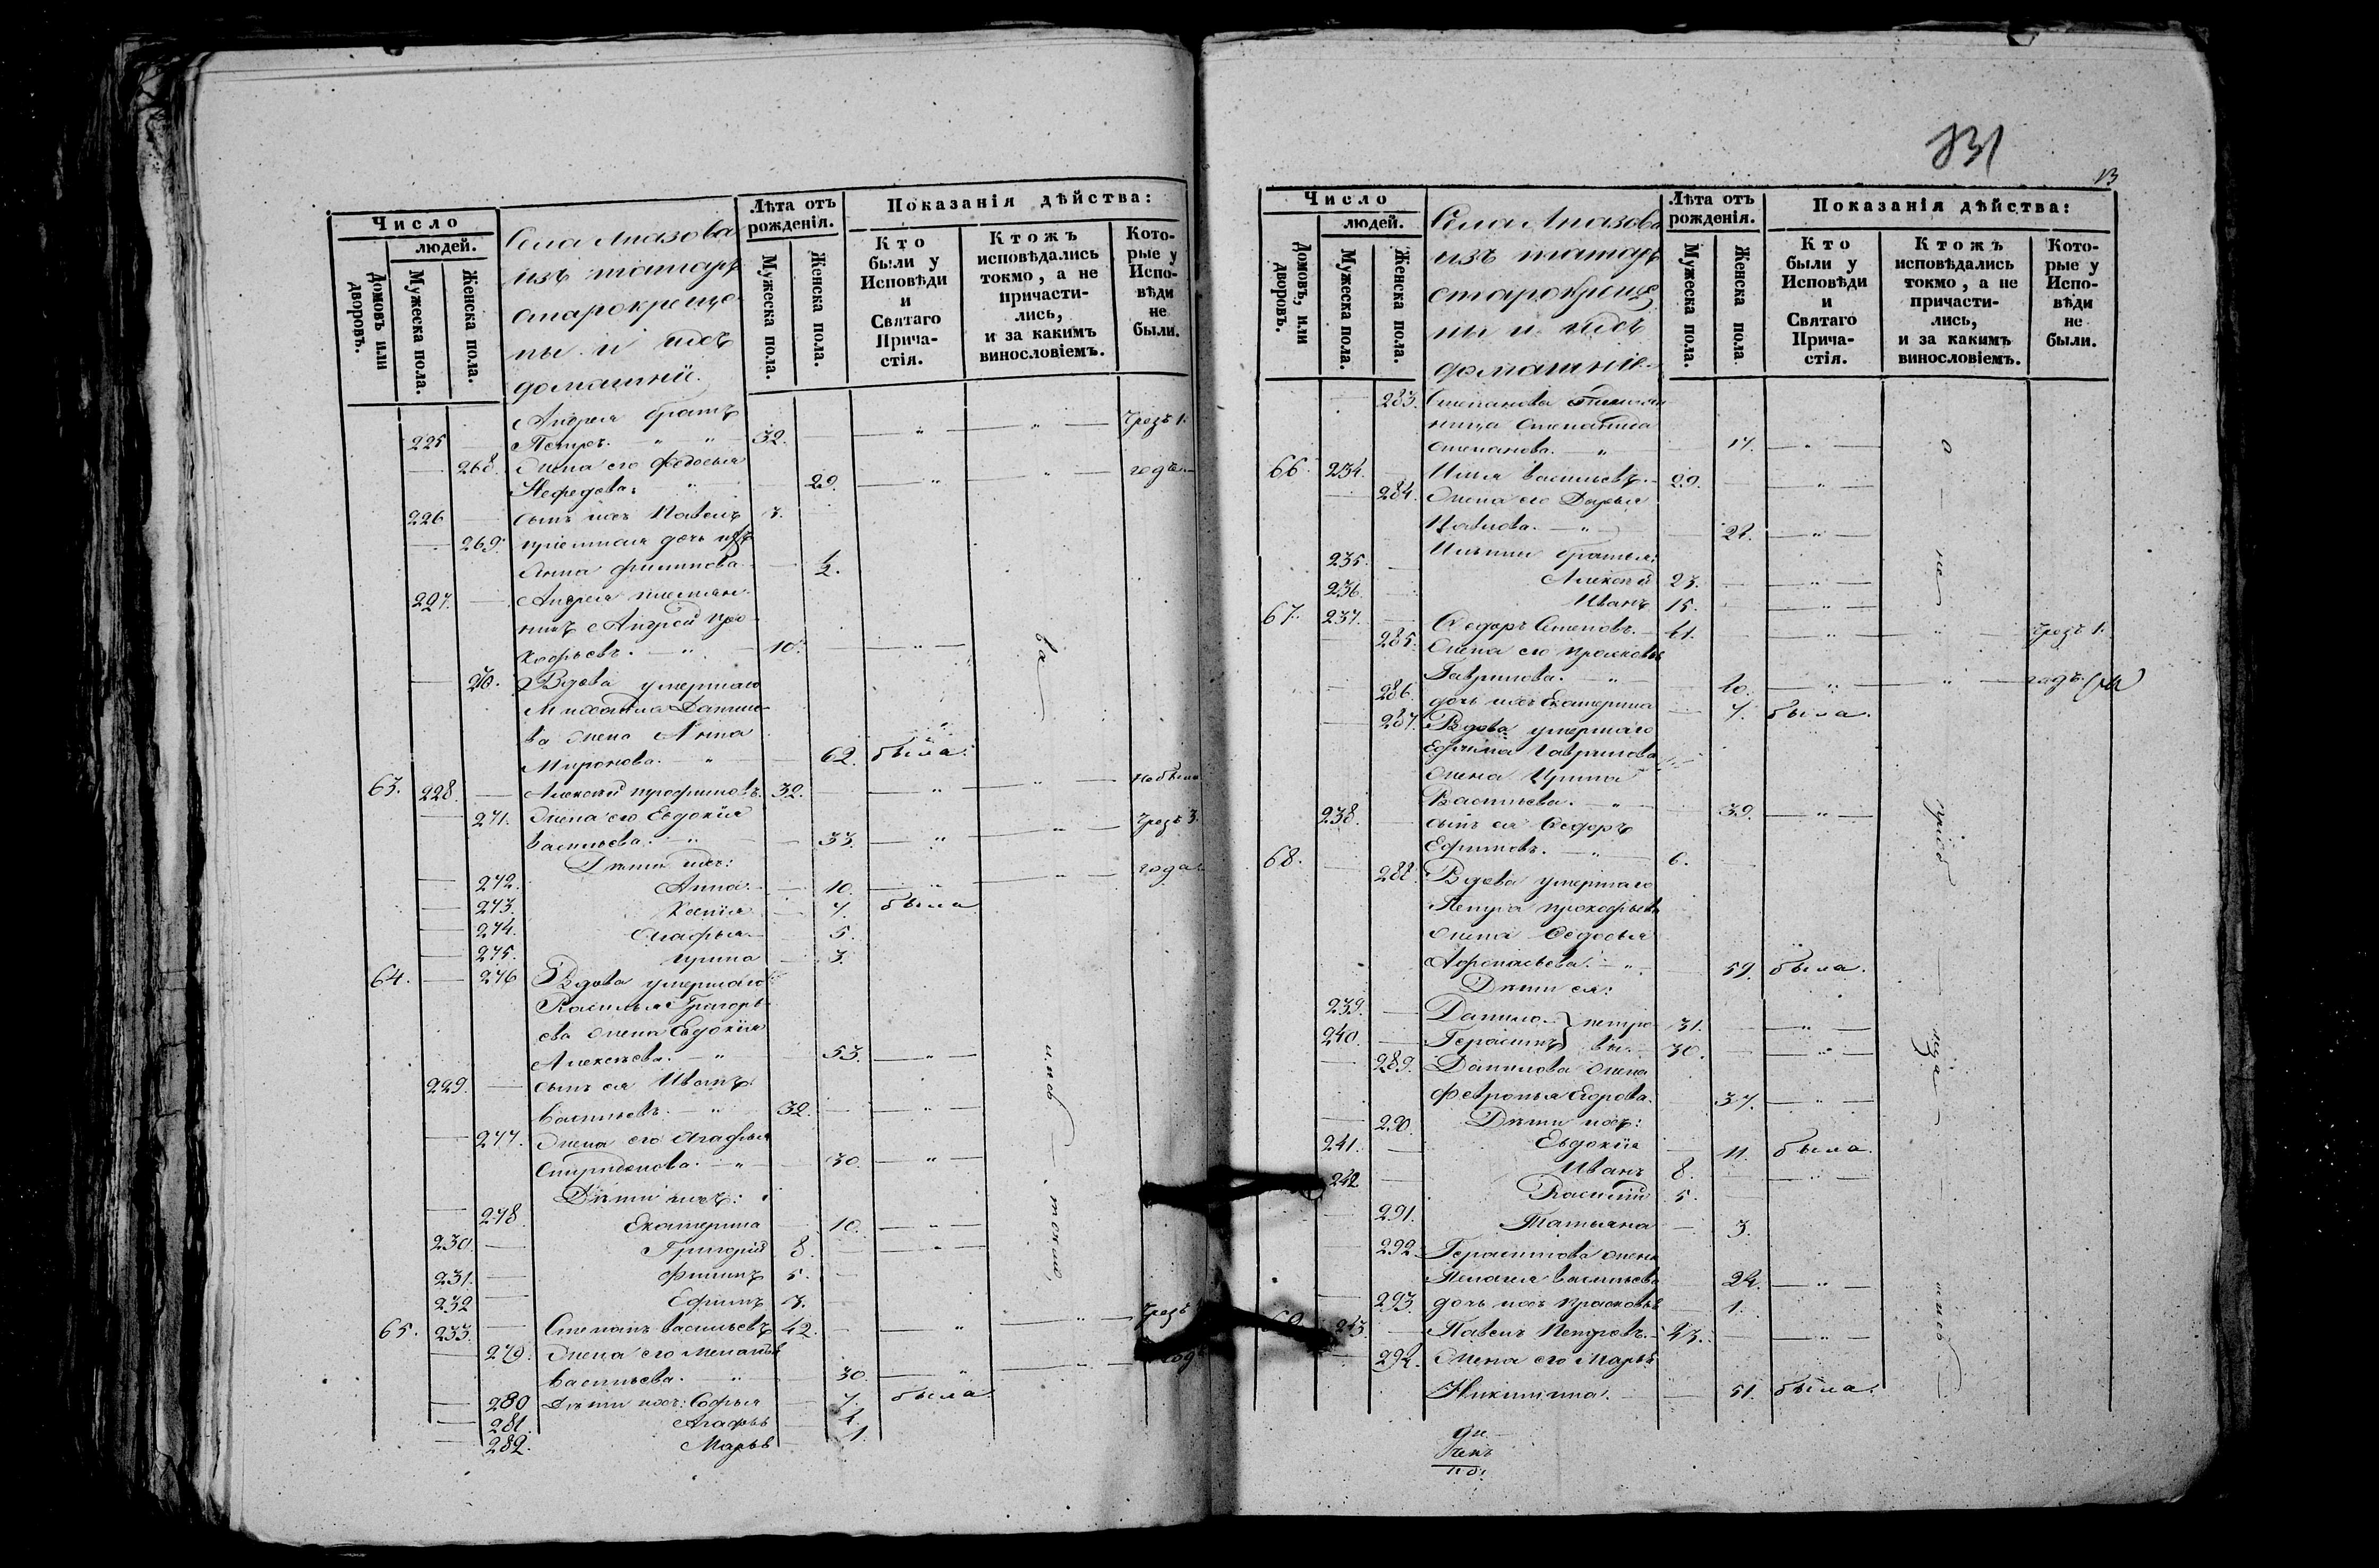 Число
людей.
Домовъ или дворовъ.
Мужеска пола.
Женска пола.
Села Апазова
изъ татаръ
старокреще-
ны и ихъ
домашніи.
Лѣта отъ
рожденія.
Мужеска пола.
Женска пола.
Показанія дѣйства:
Кто
были у
Исповѣди
и
Святаго
Прича-
стія.
Ктожъ
исповѣдались
токмо, а не
причасти-
лись,
и за какимъ
винословіемъ.
Кото-
рые у
Испо-
вѣди
не
были.
Андрея братъ
225 — Петръ. " " 32. — " — " — Чрезъ 1.
— 268. Жена его Федосья
Нефедова. " 29. — " — " — годъ.
226 — Сынъ ихъ Павелъ 3.
— 269. пріемная дочь ихъ
Анна Филипова —
227. — Андрея племян-
никъ Андрей Про-
кофьевъ. — " — 10. — " —
— Вдова умершаго
Михаила Данило-
ва жена Анна
Миронова. — " — 62. была.
63. 228. — Алексѣй Трофимовъ. 32. — " — " — не былъ
— 271. Жена его Евдокія
Васильева. — " — 33. — " — " — Чрезъ 3.
Дѣти ихъ: года.
— 272. Анна. — 10. — " — " —
— 273. Ксенія — 7. была
— 274. Агафья. — 5.
— 275. Ирина — 3.
64. — 276 Вдова умершаго
Василья Григорь-
ева жена Евдокія
Алексѣева. — " 53. — " —
229. — Сынъ ея Иванъ
Васильевъ. — " — 32. — " —
— 277. Жена его Агафья
Спиридонова. — " — 30. — " —
Дѣти ихъ:
— 278. Екатерина — 10. — " —
230. — Григорій 8. — " —
231. — Филипъ 5. —
232 — Ефимъ 3.
65. 233. — Степанъ Васильевъ 42. — " — " — Чрезъ
— 279. Жена его Меланья
Васильева. — " 30. — " — " — годъ
— 280 Дѣти ихъ: Софья — 7. была
— 281. Агафья — 4.
— 282. Марья — 1.
831
13
Число
людей.
Домовъ, или дворовъ.
Мужеска пола.
Женска пола.
Села Апазова
изъ татаръ
старокреще-
ны и ихъ
домашніи.
Лѣта отъ
рожденія.
Мужеска пола.
Женска пола
Показанія дѣйства:
Кто
были у
Исповѣди
и
Святаго
Прича-
стія.
Ктожъ
исповѣдались
токмо, а не
причасти-
лись,
и за какимъ
винословіемъ.
Кото-
рые у
Испо-
вѣди
не
были.
— 283. Степанова племян-
ница Степанида
Степанова. — " — 17. — " —
66. 234. — Илья Васильевъ. — 29. — " —
— 284. Жена его Дарья
Павлова. — " — 22. — " —
Ильины братья:
235. — Алексѣй 23. — " —
236. — Иванъ 15. — " —
67. 237. — Ѳедоръ Семеновъ. — 41. — " — " — Чрезъ 1.
— 285. Жена его Прасковья
Гаврилова. — " — 40. — " — " — годъ.
— 286. дочь ихъ Екатерина — 7. была.
— 287. Вдова умершаго
Ефима Гаврилова
жена Ирина
Васильева. — " — 39. — " —
238. сынъ ея Ѳедоръ
Ефимовъ. — " — 6. —
68. — 288. Вдова умершаго
Петра Прокофьева
жена Ѳедосья
Афонасьева. — " — 59. была.
Дѣти ея:
239. — Данило } Петро- 31. — " —
240. — Герасимъ } вы. — 30. — " —
— 289. Данилова жена
Февронья Егорова. 37. — " —
Дѣти ихъ:
— 290. Евдокія — 11. была.
241. — Иванъ 8. — " —
242 — Василій 5. —
— 291. Татьяна — 3.
— 292. Герасимова жена
Пелагея Васильева 22. — " —
— 293. дочь ихъ Прасковья — 1.
243. — Павелъ Петровъ. — 43. — " —
— 294. Жена его Марья
Никитина. — 51. была.